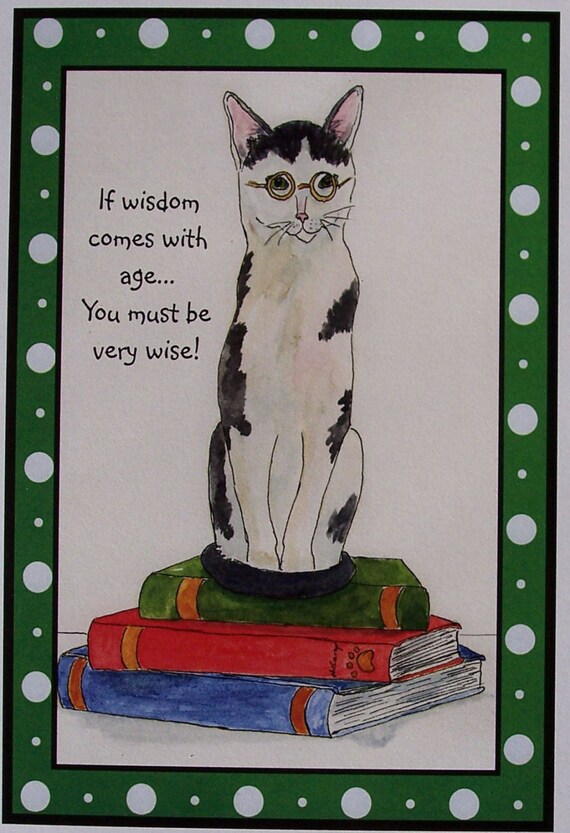 If wisdom
comes with
age...
You must be
very wise!